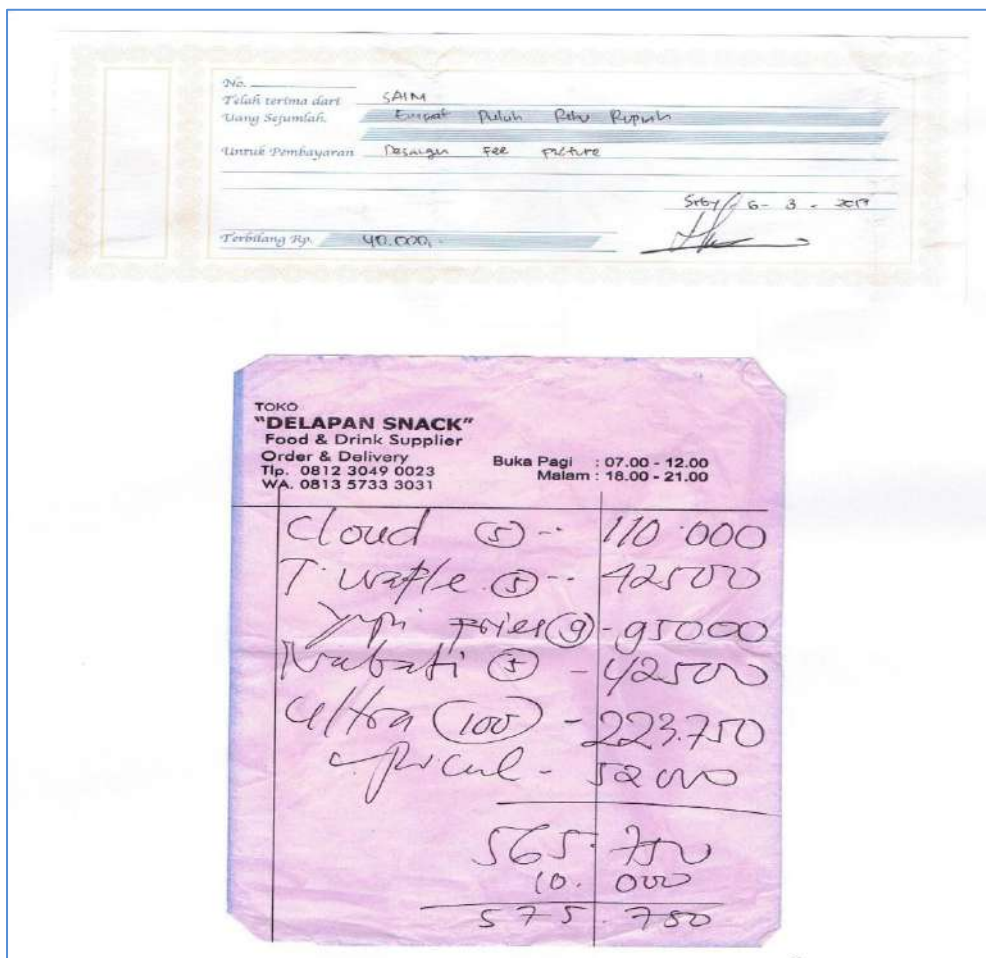 No.
Telah terima dari SAIM
Uang Sejumlah. Empat Puluh Ribu Rupiah
Untuk Pembayaran Fee
Srby, 6 - 3 - 2019
Terbilang Rp. 40.000,-
TOKO
"DELAPAN SNACK"
Food & Drink Supplier
Order & Delivery
Tlp. 0812 3049 0023
WA. 0813 5733 3031
Buka Pagi : 07.00 - 12.00
Malam : 18.00 - 21.00
Cloud (5) -- 110.000
T. Wafle (5) -- 42500
Yupi Fries (9) - 95000
Nabati (5) - 42500
Ultra (100) - 223.750
- 52000
565.750
10.000
575.750